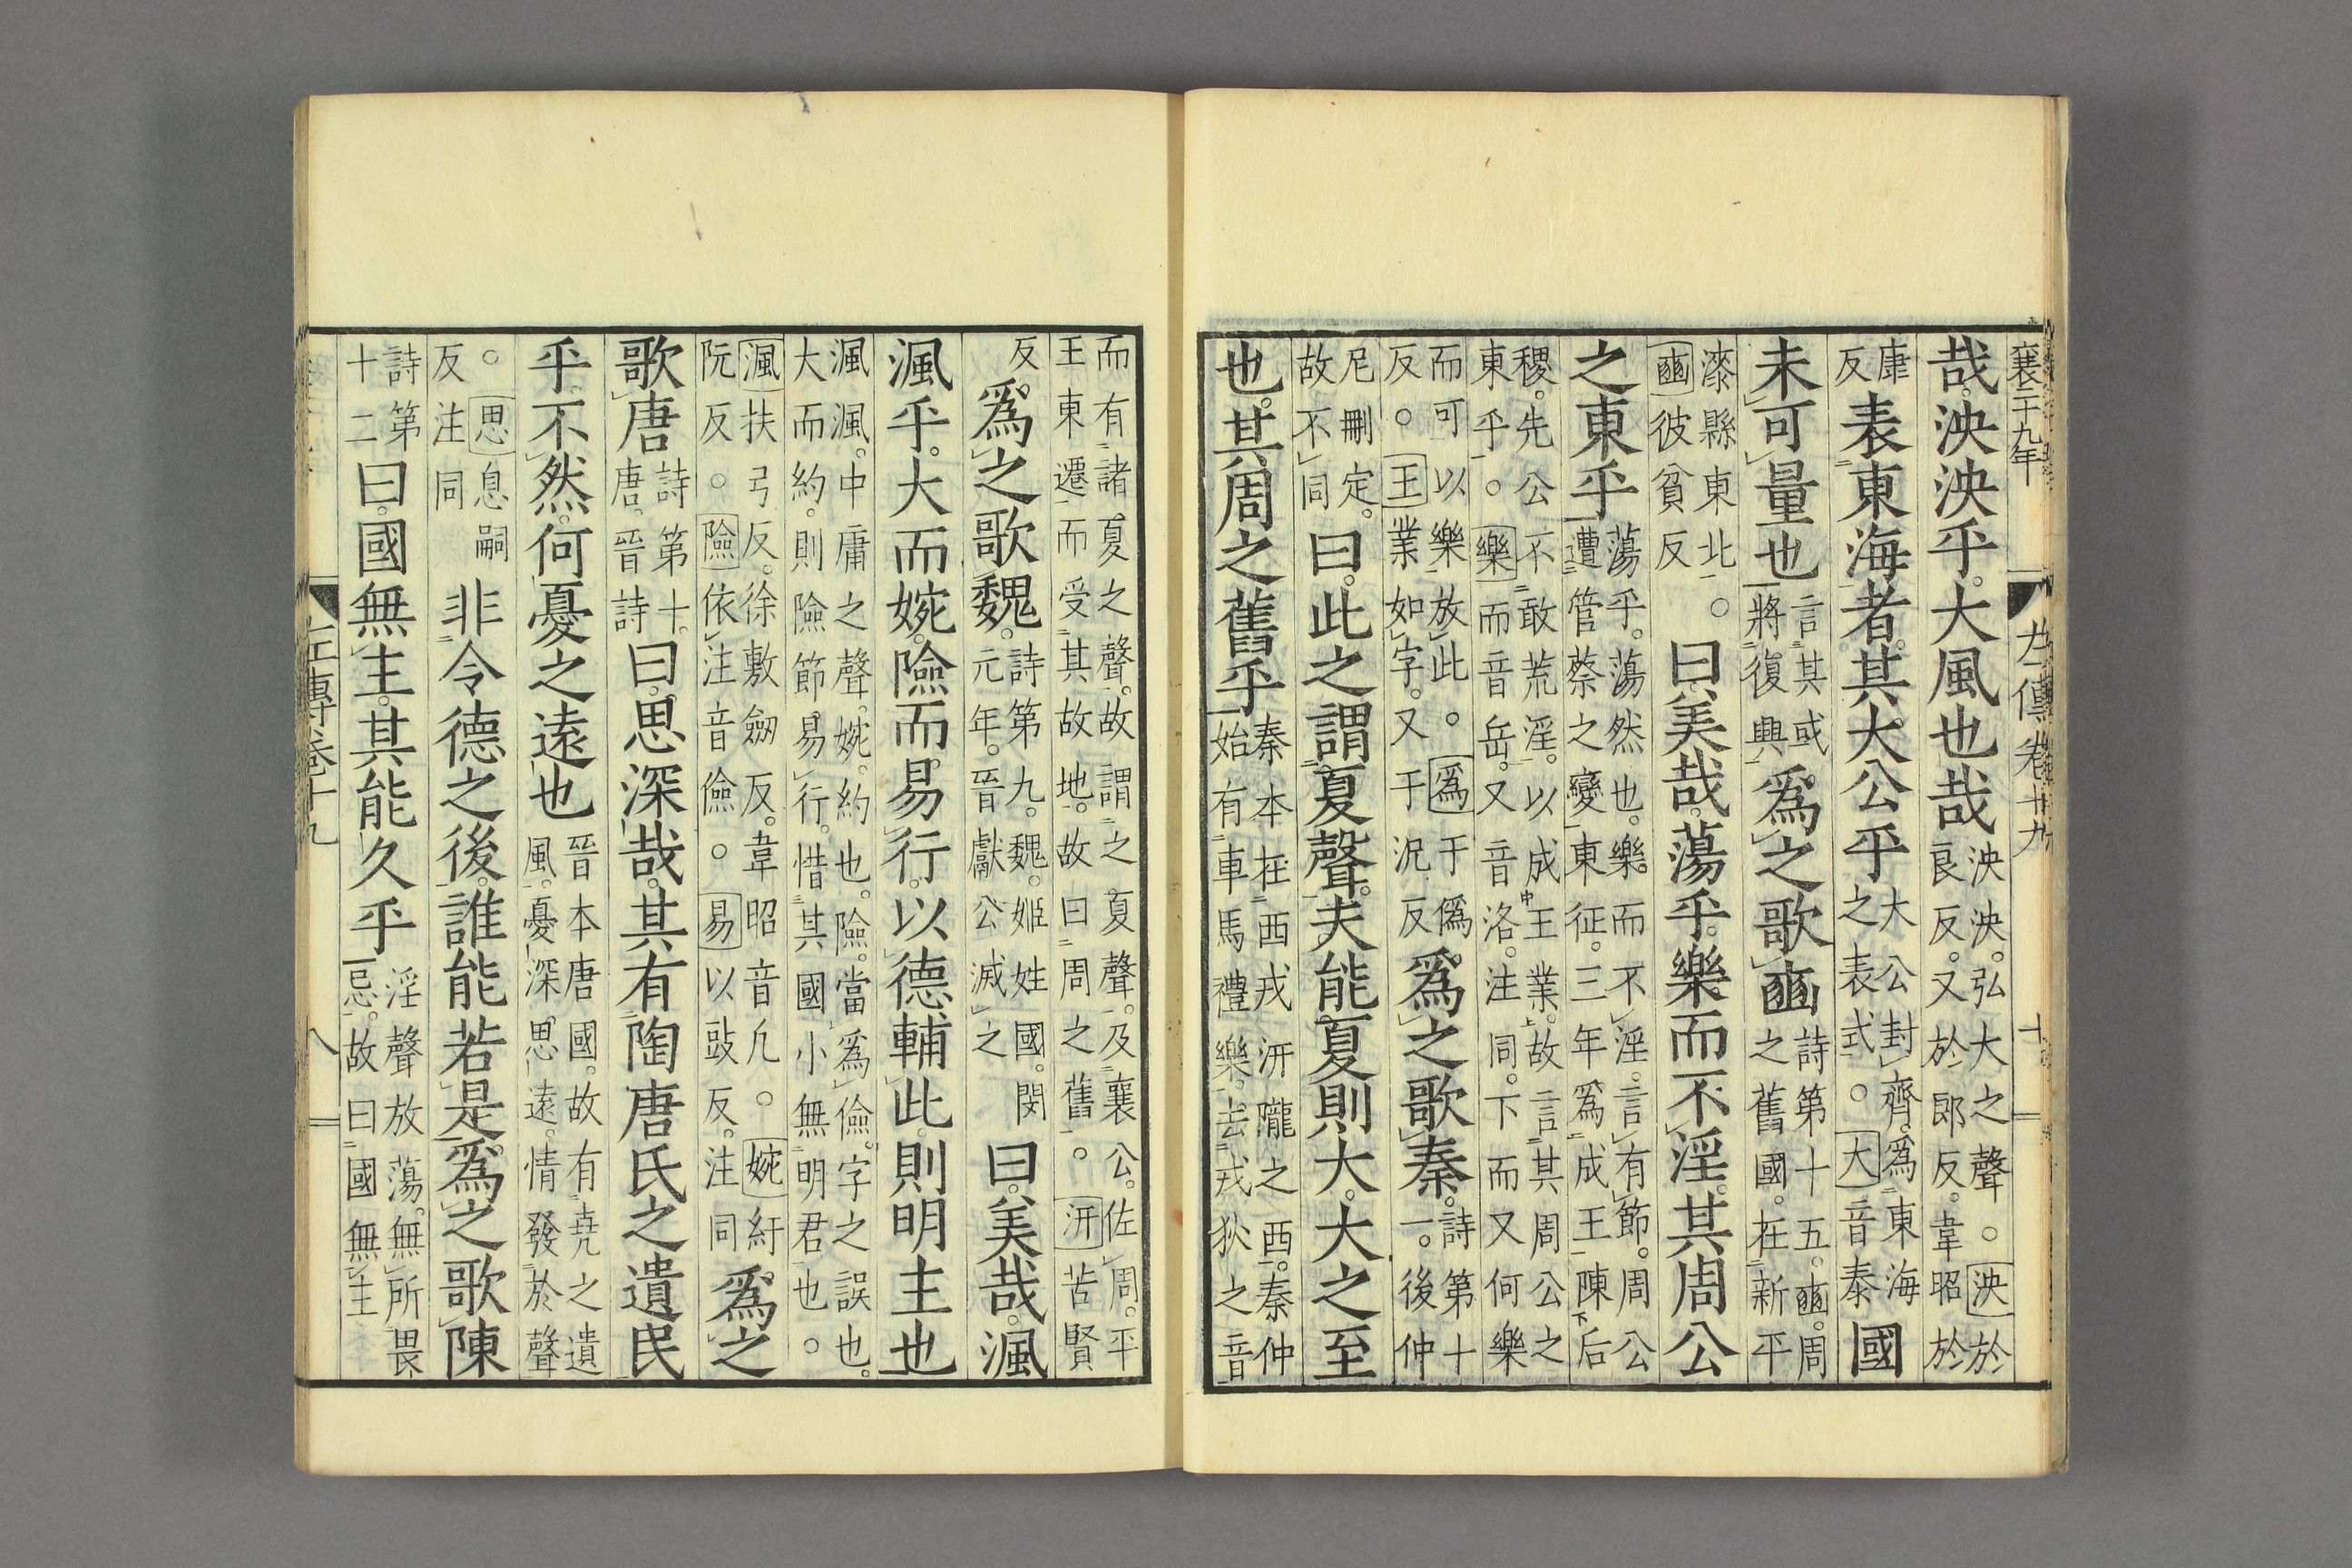 襄二十九年
左傳卷十九 十
哉。泱泱乎。大風也哉泱泱。弘大之聲。○泱於良反。又於郎反。韋昭於
康反表東海者。其大公乎大公封齊。爲東海之表式。○大音泰國
未可量也言其或將復興爲之歌豳詩第十五。豳。周之舊國。在新平
漆縣東北。○豳彼貧反曰。美哉。蕩乎。樂而不淫。其周公
之東乎蕩乎。蕩然也。樂而不淫。言有節。周公遭管蔡之變東征。三年爲成王陳后
稷。先公不敢荒淫。以成王業。故言其周公之東乎。○樂而音岳。又音洛。注同。下而又何樂
而可以樂放此。○爲于僞反。○王業如字。又于況反爲之歌秦。詩第十一。後仲
尼刪定。故不同曰。此之謂夏聲。夫能夏則大。大之至
也。其周之舊乎秦本在西戎汧隴之西。秦仲始有車馬禮樂。去戎狄之音
而有諸夏之聲。故謂之夏聲。及襄公。佐周。平王東遷。而受其故地。故曰周之舊。○汧苦賢
反爲之歌魏。詩第九。魏。姬姓國。閔元年。晉獻公滅之曰。美哉。渢
渢乎。大而婉。險而易行。以德輔此。則明主也
渢渢。中庸之聲。婉。約也。險。當爲儉。字之誤也。大而約。則險節易行。惜其國小無明君也。○
渢扶弓反。徐敷劒反。韋昭音凡。○婉紆阮反。○險依注音儉。○易以豉反。注同爲之
歌唐詩第十。唐。晉詩曰。思深哉。其有陶唐氏之遺民
乎。不然。何憂之遠也晉本唐國。故有堯之遺風。憂深思遠。情發於聲
。○思息嗣反注同非令德之後。誰能若是。爲之歌陳
詩第十二曰。國無主。其能久乎淫聲放蕩。無所畏忌。故曰國無主
左傳卷十九 八